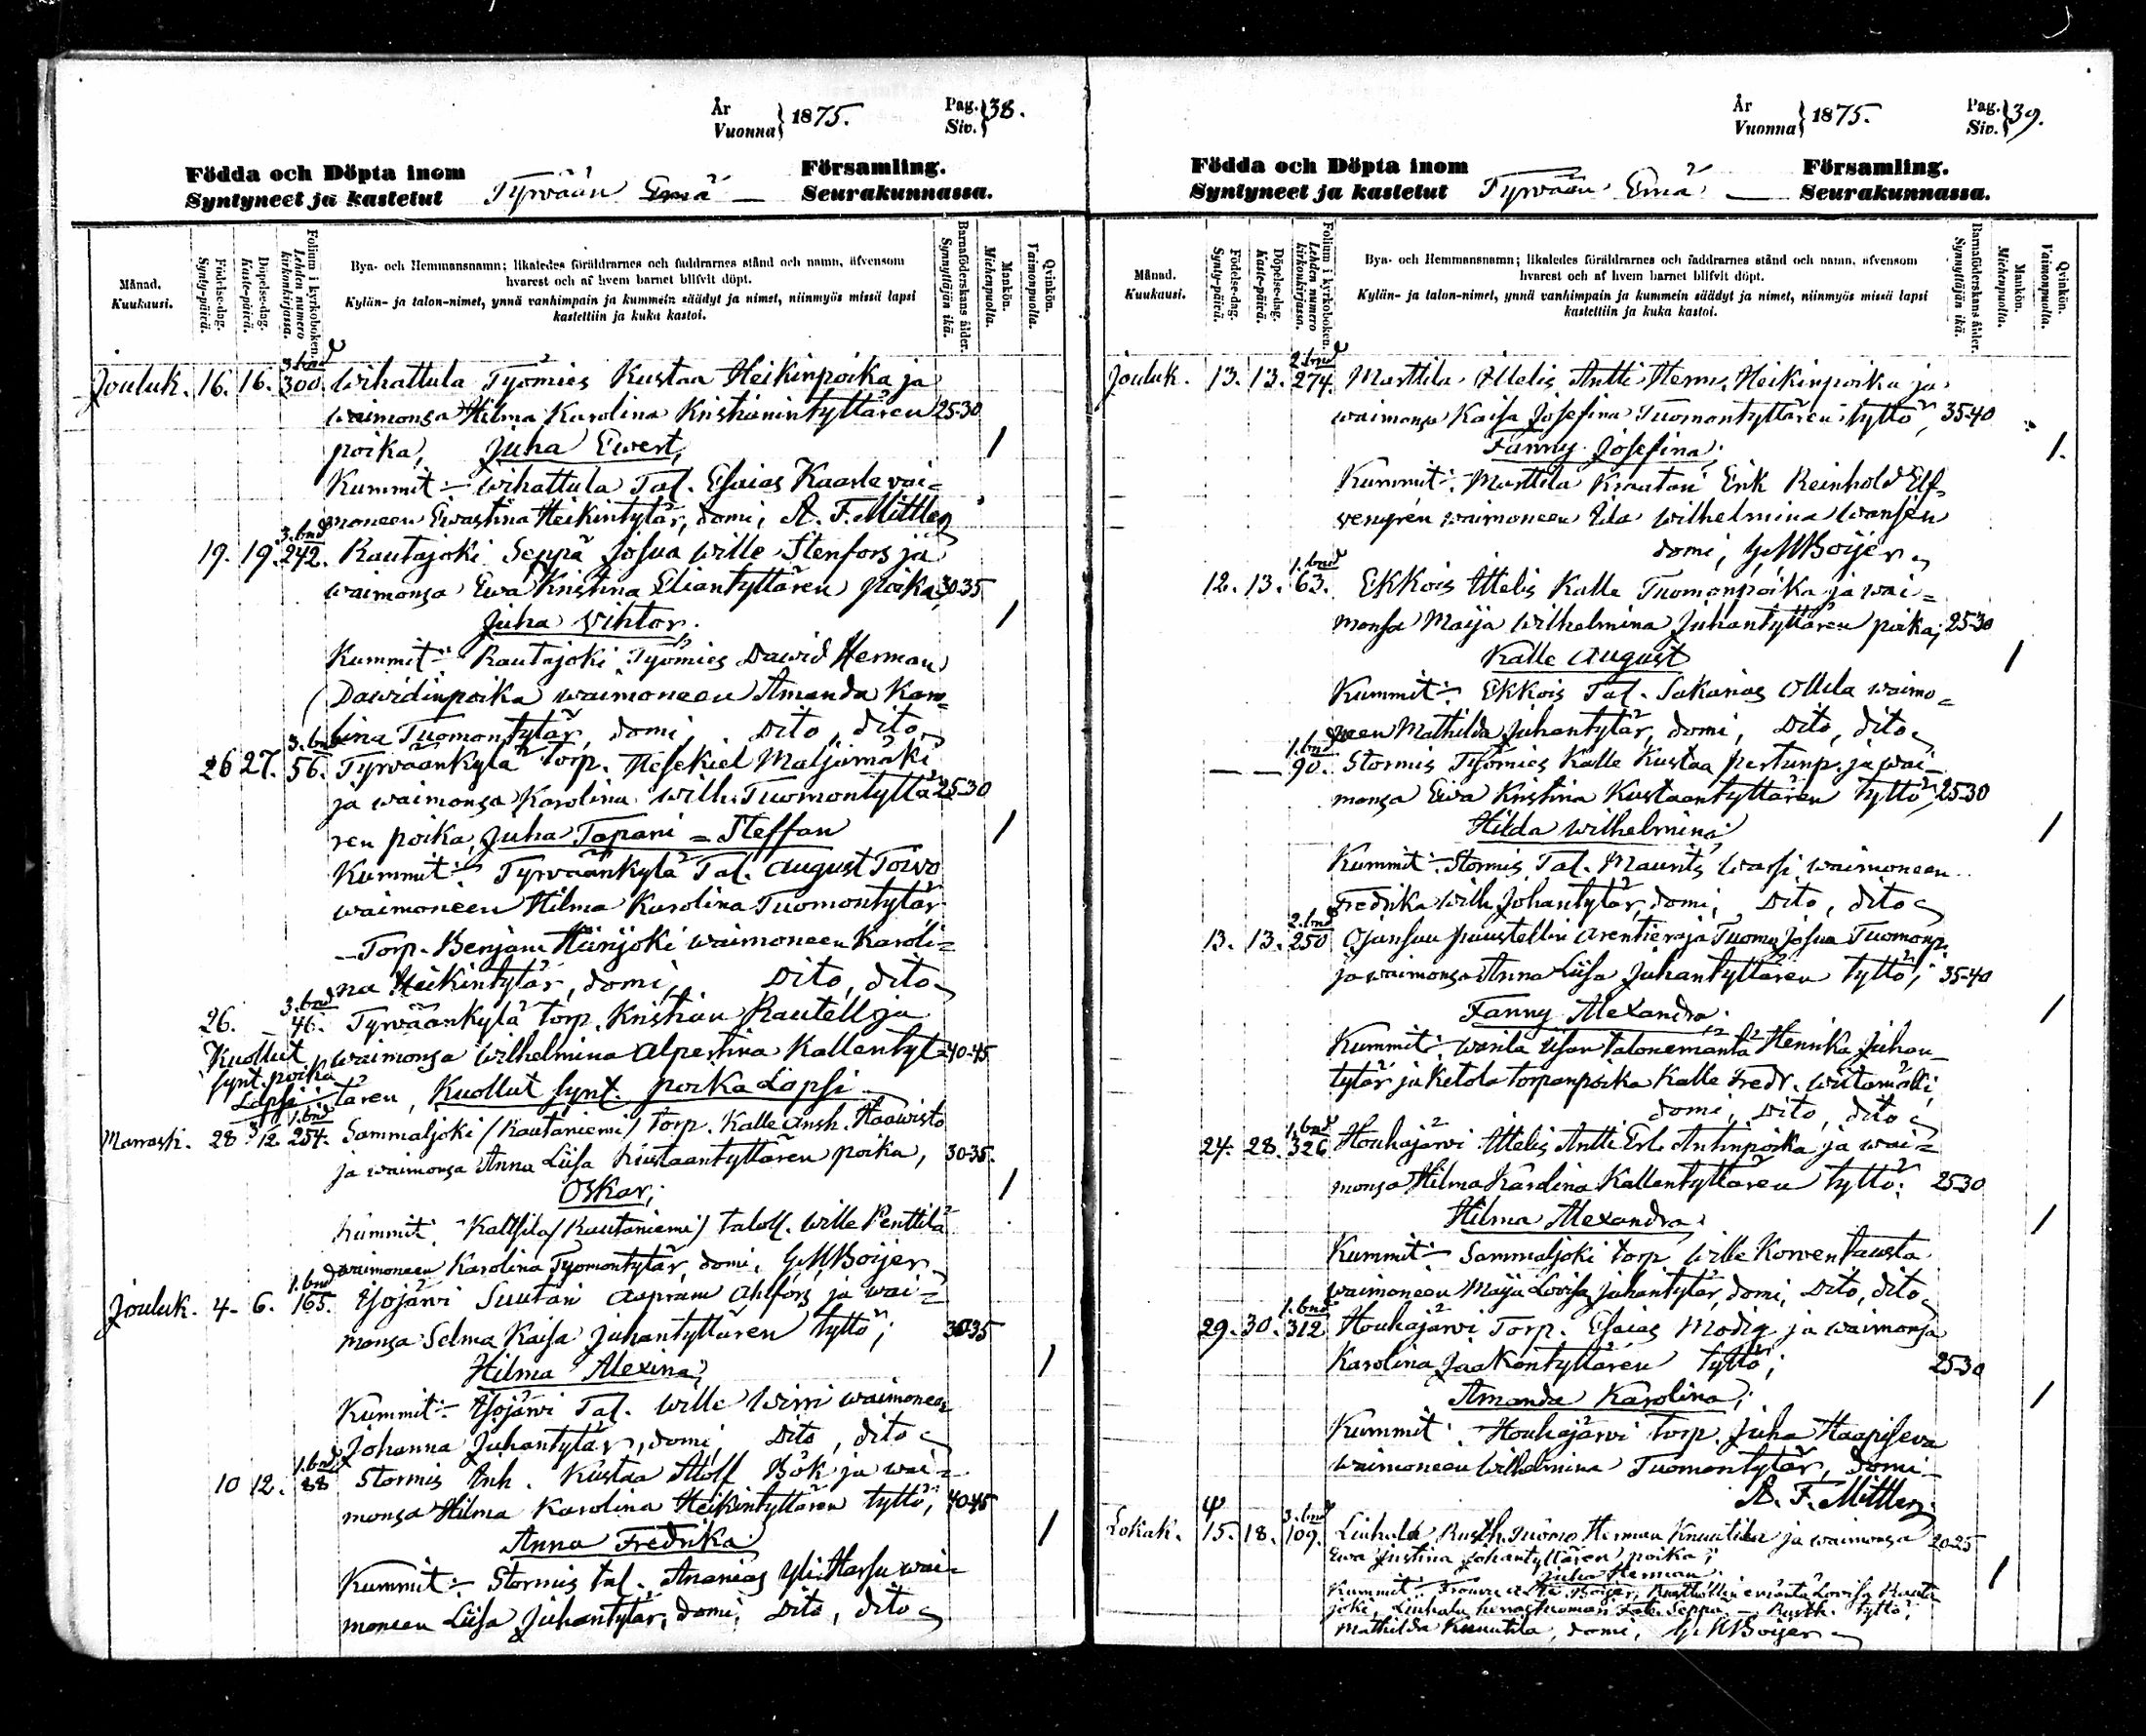 År
Vuonna } 1875.
Pag.
Siv. } 38.
Födda och Döpta inom
Syntyneet ja kastetut
Tyrvään Emä —
Församling.
Seurakunnassa.
Månad.
Kuukausi.
Födelse-dag.
Synty-päivä.
Döpelse-dag.
Kaste-päivä.
Folium i kyrkoboken.
Lehden numero
kirkonkirjassa.
Bya- och Hemmansnamn; likaledes föräldrarnes och faddrarnes stånd och namn, äfvensom
hvarest och af hvem barnet blifvit döpt.
Kylän- ja talon-nimet, ynnä vanhimpain ja kummein säädyt ja nimet, niinmyös missä lapsi
kastettiin ja kuka kastoi.
Barnaföderskans ålder.
Synnyttäjän ikä.
Mankön.
Miehenpuolia.
Qvinkön.
Vaimonpuolia.
3. bnd
Jouluk. 16. 16. 300. Wihattula Työmies Kustaa Heikinpoika ja
waimonsa Hilma Karolina Kristianintyttären 25-30
poika, Juha Ewert, 1
Kummit:- Wihattula Tal. Esaias Kaarle vai-
moneen Ewastina Heikintytär, domi, A. F. Mittler
3. bnd
19. 19. 242. Rautajoki Seppä Josua Wille Stenfors ja
waimonsa Ewa Kristina Eliantyttären poika, 30-35
Juha Wihtor. 1
Kummit:- Rautajoki Työmies Dawid Herman
Dawidinpoika waimoneen Amanda Karo-
lina Tuomontytär, domi, Dito, dito
3. bnd
26 27. 56. Tyrväänkylä Torp. Hesekiel Maljamäki
ja waimonsa Karolina Wilh. Tuomontyttä- 25-30
ren poika, Juha Tapani = Steffan 1
Kummit:- Tyrväänkylä Tal. August Toivo
waimoneen Hilma Karolina Tuomontytär
— Torp. Benjam Hiirijoki waimoneen Karoli-
na Heikintytär, domi, Dito, dito
3. bnd
26. — 46. Tyrväänkylä torp. Kristian Rautell ja
Kuollut waimonsa Wilhelmina Alpertina Kallentyt- 40-45
synt. poika
Lapsi tären, Kuollut synt. poika Lapsi
1. bnd
Marrask. 28 5/12 254. Sammaljoki (Rautaniemi) torp. Kalle Ansh. Haawisto
ja waimonsa Anna Liisa Kustaantyttären poika, 30-35.
Oskar; 1
Kummit:- Kaltsila (Rautaniemi) taloll. Wille Penttilä
waimoneen Karolina Tuomontytär, domi, G. M. Boijer
1. bnd
Jouluk. 4- 6. 165. Illojärvi Suutari Aapram Ahlfors ja wai-
monsa Selma Kaisa Juhantyttären tyttö; 30-35
Hilma Alexina; 1
Kummit:- Illojärvi Tal. Wille Wirri waimoneen
Johanna Juhantytär, domi, Dito, dito
1. bnd
10 12. 88 Stormis Inh. Kustaa Adolf Bök ja wai-
monsa Hilma Karolina Heikintyttären tyttö, 40-45
Anna Fredrika 1
Kummit:- Stormis tal. Ananias Yli-Harsu wai-
moneen Liisa Juhantytär, domi, Dito, dito
År
Vuonna } 1875.
Pag.
Siv. } 39.
Födda och Döpta inom
Syntyneet ja kastetut
Tyrvään Emä —
Församling.
Seurakunnassa.
Månad.
Kuukausi.
Födelse-dag.
Synty-päivä.
Döpelse-dag.
Kaste-päivä.
Folium i kyrkoboken.
Lehden numero
kirkonkirjassa.
Bya- och Hemmansnamn; likaledes föräldrarnes och faddrarnes stånd och namn, äfvensom
hvarest och af hvem barnet blifvit döpt.
Kylän- ja talon-nimet, ynnä vanhimpain ja kummein säädyt ja nimet, niinmyös missä lapsi
kastettiin ja kuka kastoi.
Barnaföderskans ålder.
Synnyttäjän ikä.
Mankön.
Miehenpuolia.
Qvinkön.
Vaimonpuolia.
2. bnd
Jouluk. 13. 13. 274. Marttila Ittelis Antti Herm. Heikinpoika ja
waimonsa Kaisa Josefina Tuomontyttären tyttö, 35-40
Fanny Josefina; 1.
Kummit:- Marttila Kraatari Erik Reinhold Elf-
vengrén waimoneen Ida Wilhelmina Wansén
domi, G. M. Boijer
1. bnd
12. 13. 63. Ekkois Ittelis Kalle Tuomonpoika ja wai-
monsa Maija Wilhelmina Juhantyttären poika; 25-30
Kalle August 1
Kummit:- Ekkois Tal. Sakarias Ollila waimo-
neen Mathilda Juhantytär, domi, Dito, dito
1. bnd
— — 90. Stormis Työmies Kalle Kustaa Perttunp. ja wai-
monsa Ewa Kristina Kustaantyttären tyttö, 25-30
Hilda Wilhelmina 1
Kummit:- Stormis Tal. Maurits Warsi waimoneen
Fredrika Wilh. Johantytär, domi, Dito, dito
2. bnd
13. 13. 250 Ojansuu puustellin arentieraja Tuomas Josua Tuomonp.
ja waimonsa Anna Liisa Juhantyttären tyttö; 35-40
Fanny Alexandra. 1
Kummit:- talonemäntä Henrika Juhan-
tytär ja Ketola torpanpoika Kalle Fredr.
domi, Dito, dito
1. bnd
24. 28. 326 Houhajärvi Ittelis Antti Erl. Antinpoika ja wai-
monsa Hilma Karolina Kallentyttären tyttö: 25-30
Hilma Alexandra; 1
Kummit:- Sammaljoki torp Wille Korventausta
waimoneen Maija Lovisa Juhantytär, domi, Dito, dito
1. bnd
29. 30. 312 Houhajärvi Torp. Esaias Modig ja waimonsa
Karolina Jaakontyttären tyttö; 25-30
Amanda Karolina; 1
Kummit:- Houhajärvi torp. Juha Haapiseva
waimoneen Wilhelmina Tuomontytär, domi-
A. F. Mittler
3. bnd
Lokak. 15. 18. 109. Liuhala Rusth. Tuomo Herman Knuutila ja waimonsa 20-25
Ewa Justina Johantyttären poika;
Juha Herman. 1
Kummit:- Boijer, Rusthollin emäntä Lovisa Rauta-
joki, Liuhala Seppä — Rusth. tyttö;
Mathilda Knuutila, domi, G. M. Boijer